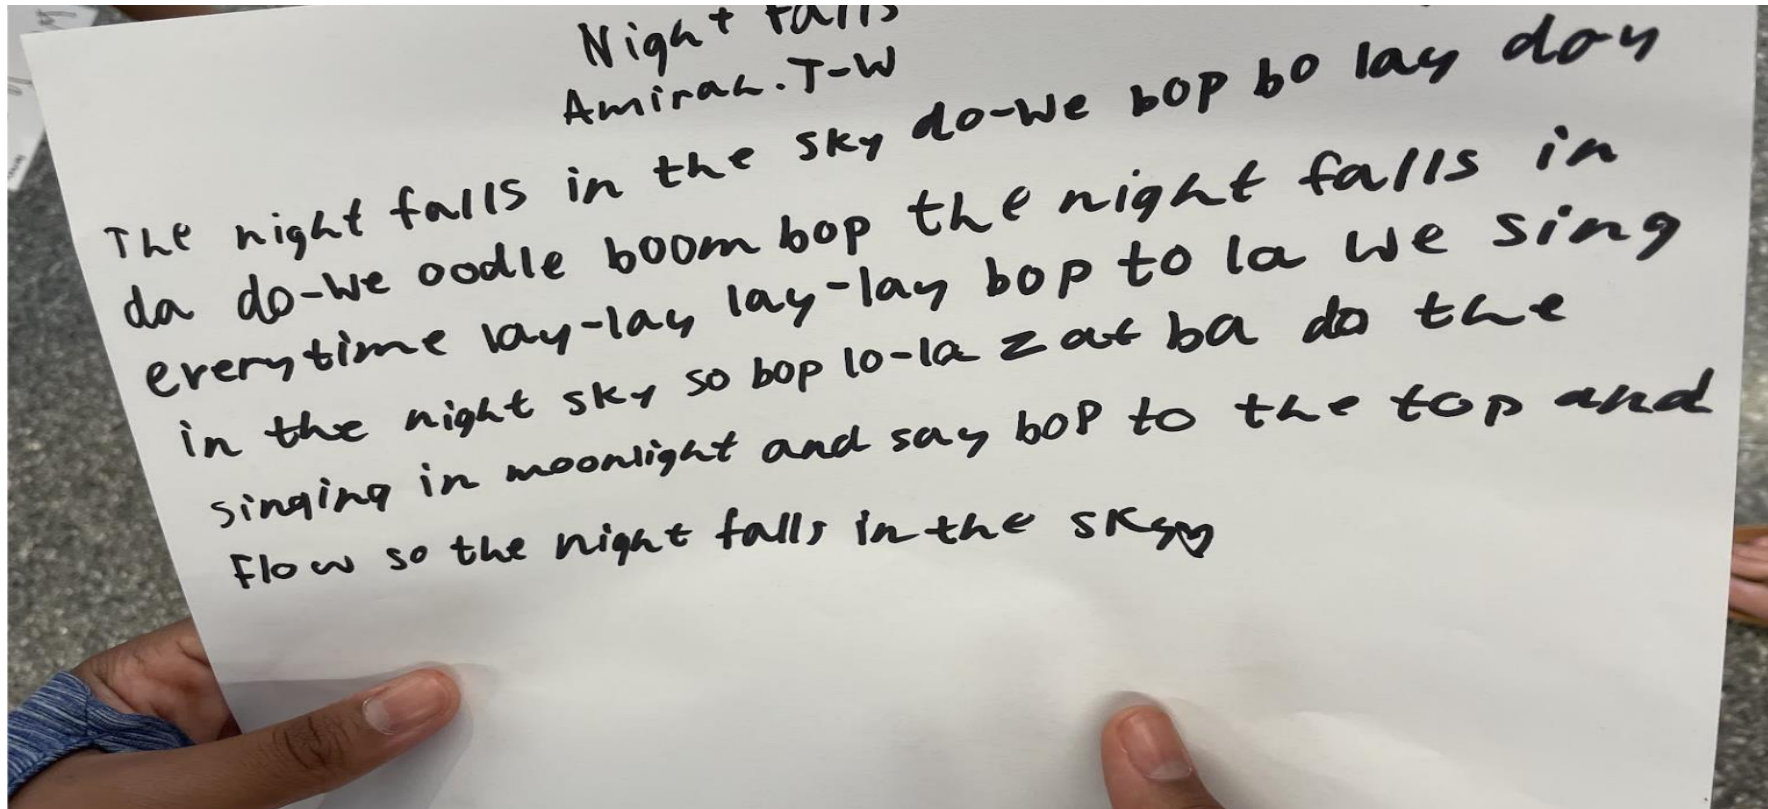 Night Falls
Amirah.T-W
The night falls in the sky do-we bop bo lay day
da do-we oodle boom bop the night falls in
everytime lay-lay lay-lay bop to la we sing
in the night sky so bop lo-la zat ba do the
singing in moonlight and say bop to the top and
Flow so the night falls in the sky♡